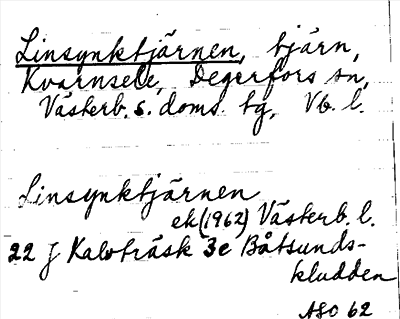 Linsynktjärnen, tjärn,
Kvarnsele, Degerfors sn,
Västerb. s. doms. tg, Vb. l.
Linsynktjärnen
ek (1962) Västerb. l.
22 J Kalvträsk 3e Båtsunds-
kludden
ASO 62